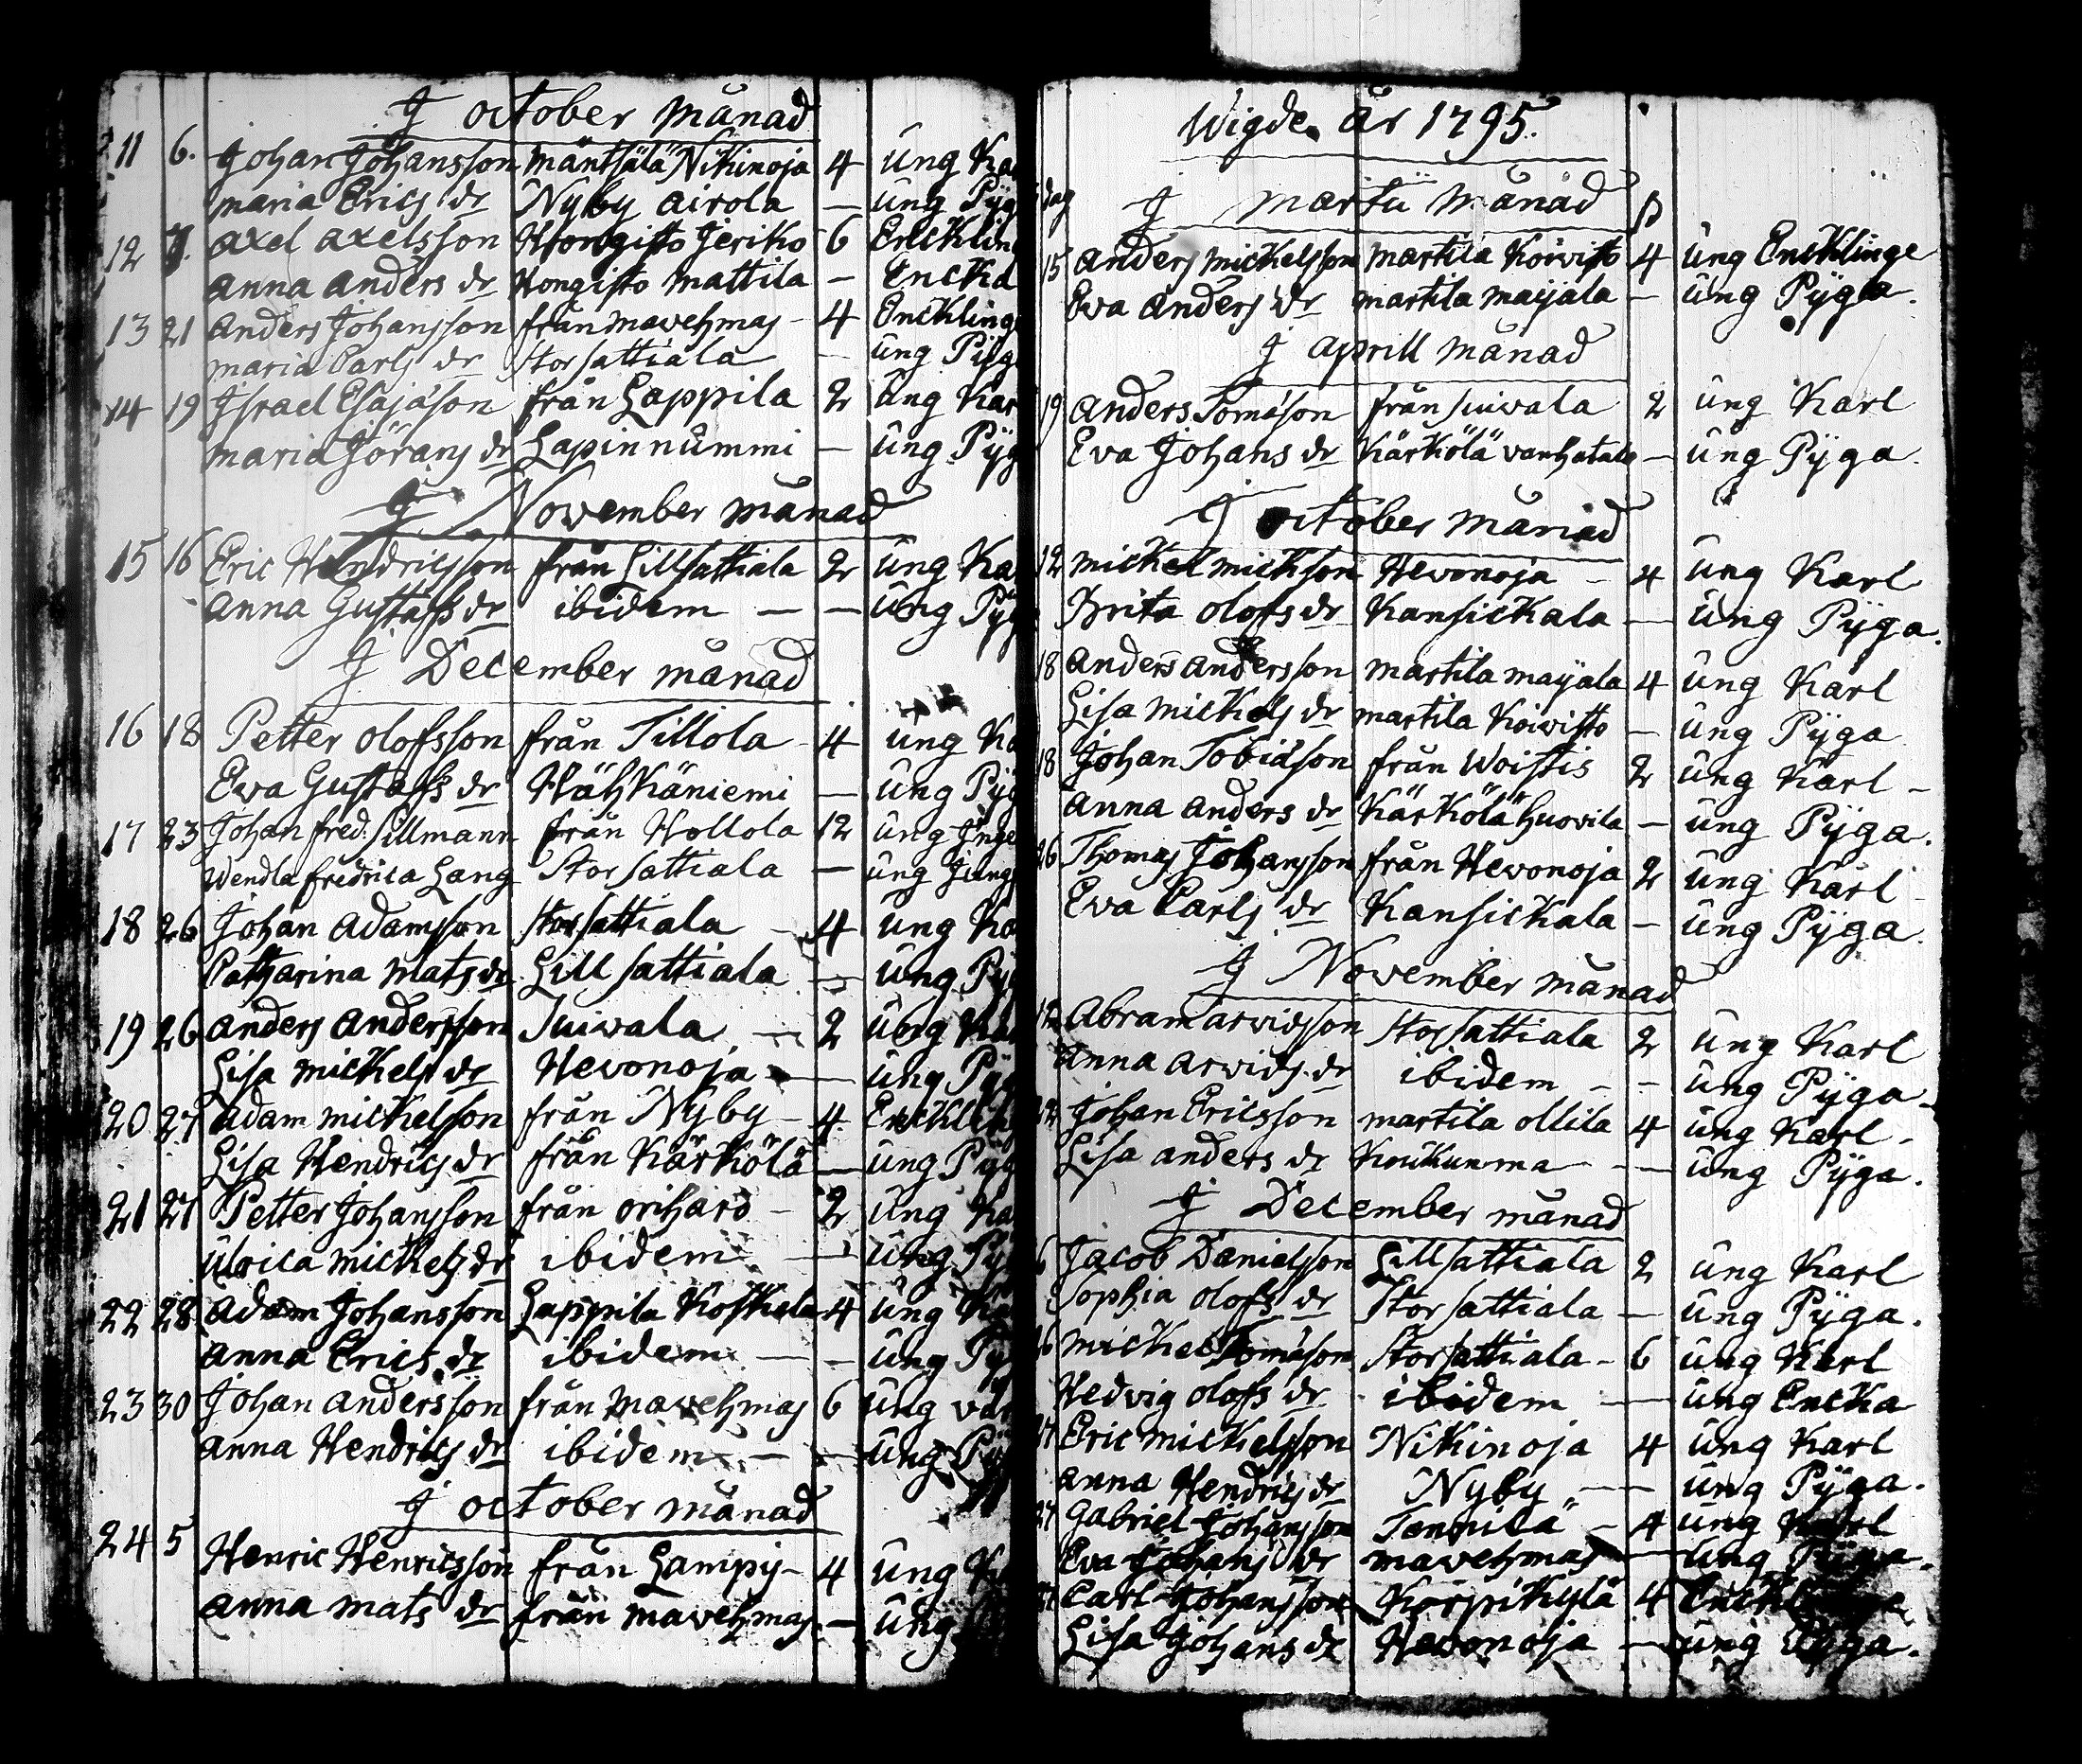 J October Månad
11 6. Johan Johansson Mäntsälä Nikinoja 4 ung
Maria Erics dr Nyby Airola — ung
12 Axel Axelsson Hongisto Jeriko 6
Anna Anders dr Hongisto Mattila —
13 21 Anders Johansson från Mavehmas - 4
Maria Carls dr Stor Sattiala — ung
14 19 Israel Esajason från Lappila 2 ung
Maria Jörans dr Lapinnummi — ung
J November Månad
15 16 Eric Hendricsson från Lill Sattiala 2 ung
Anna Gustafs dr ibidem — — ung
J December Månad
16 18 Petter Olofsson från Tillola - 4 ung
Eva Gustafs dr Hähkäniemi — ung
17 23 Johan Fred. Sillmann från Hollola 12 ung
Wendla Fredrica Lang Stor Sattiala — ung
18 26 Johan Adamsson Stor Sattiala - 4 ung
Catharina Mats dr Lill Sattiala — ung
19 26 Anders Andersson Tuiwala — 2 ung
Lisa Mickels dr Hevonoja — ung
20 27 Adam Mickelsson från Nyby - 4
Lisa Hendrics dr från Kärkölä — ung
21 27 Petter Johansson från Orihard - 2 ung
Ulrica Mickels dr ibidem — ung
22 28 Adam Johansson Lappila Koskela 4 ung
Anna Erics dr ibidem — - ung
23 30 Johan Andersson från Mavehmas 6 ung
Anna Hendrics dr ibidem — - ung
J October Månad
24 5 Henric Henricsson från Lampis - 4 ung
Anna Mats dr från Mavehmas - ung
Wigde År 1795.
dag J Martii Månad
15 Anders Mickelsson Martila Koivisto 4 ung Encklinge
Eva Anders dr Martila Maijala — ung Pÿga.
J Aprill Månad
19 Anders Tomason från Juivala 2 ung Karl
Eva Johans dr Kärkölä Vanhatalo — ung Pÿga.
J October Månad
12 Mickel Mickson Hevonoja - 4 ung Karl
Brita Olofs dr Kansickala — ung Pÿga.
18 Anders Andersson Martila Maijala 4 ung Karl
Lisa Mickels dr Martila Koivisto — ung Pÿga
18 Johan Tobiason från Woistis 2 ung Karl -
Anna Anders dr Kärkölä Huovila — ung Pÿga.
26 Thomas Johansson från Hevonoja 2 ung Karl
Eva Carls dr Kansickala — ung Pÿga.
J November Månad
12 Abram Arvidsson Stor Sattiala 2 ung Karl
Anna Arvids dr ibidem - - ung Pÿga -
Johan Ericsson Martila Ollila 4 ung Karl -
Lisa Anders dr Koukunma — ung Pÿga.
J December Månad
6 Jacob Danielsson Lill Sattiala 2 ung Karl
Sophia Olofs dr Stor Sattiala — ung Pÿga.
Mickel Tomason Stor Sattiala - 6 ung Karl
Hedvig Olofs dr ibidem — ung Encka
Eric Mickelsson Nikinoja 4 ung Karl
Anna Hendrics dr Nyby — ung Pÿga.
27 Gabriel Johansson Tennilä - 4 ung Karl
Eva Johans dr Mavehmas — ung Pÿga.
Carl Johansson Korpikylä 4
Lisa Johans dr Hevonoja — ung Pÿga.